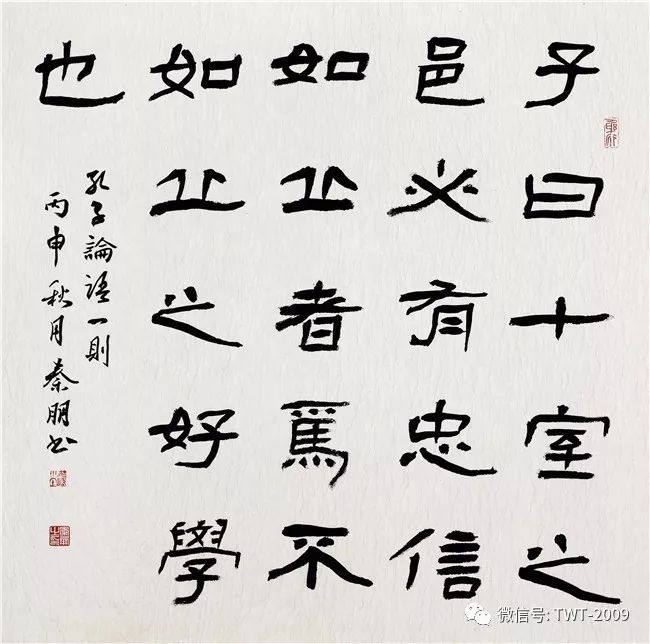 子曰十室之
邑必有忠信
如丘者焉不
如丘之好學
也
孔子論語一則
丙申秋月秦朋书
微信号: TWT-2009